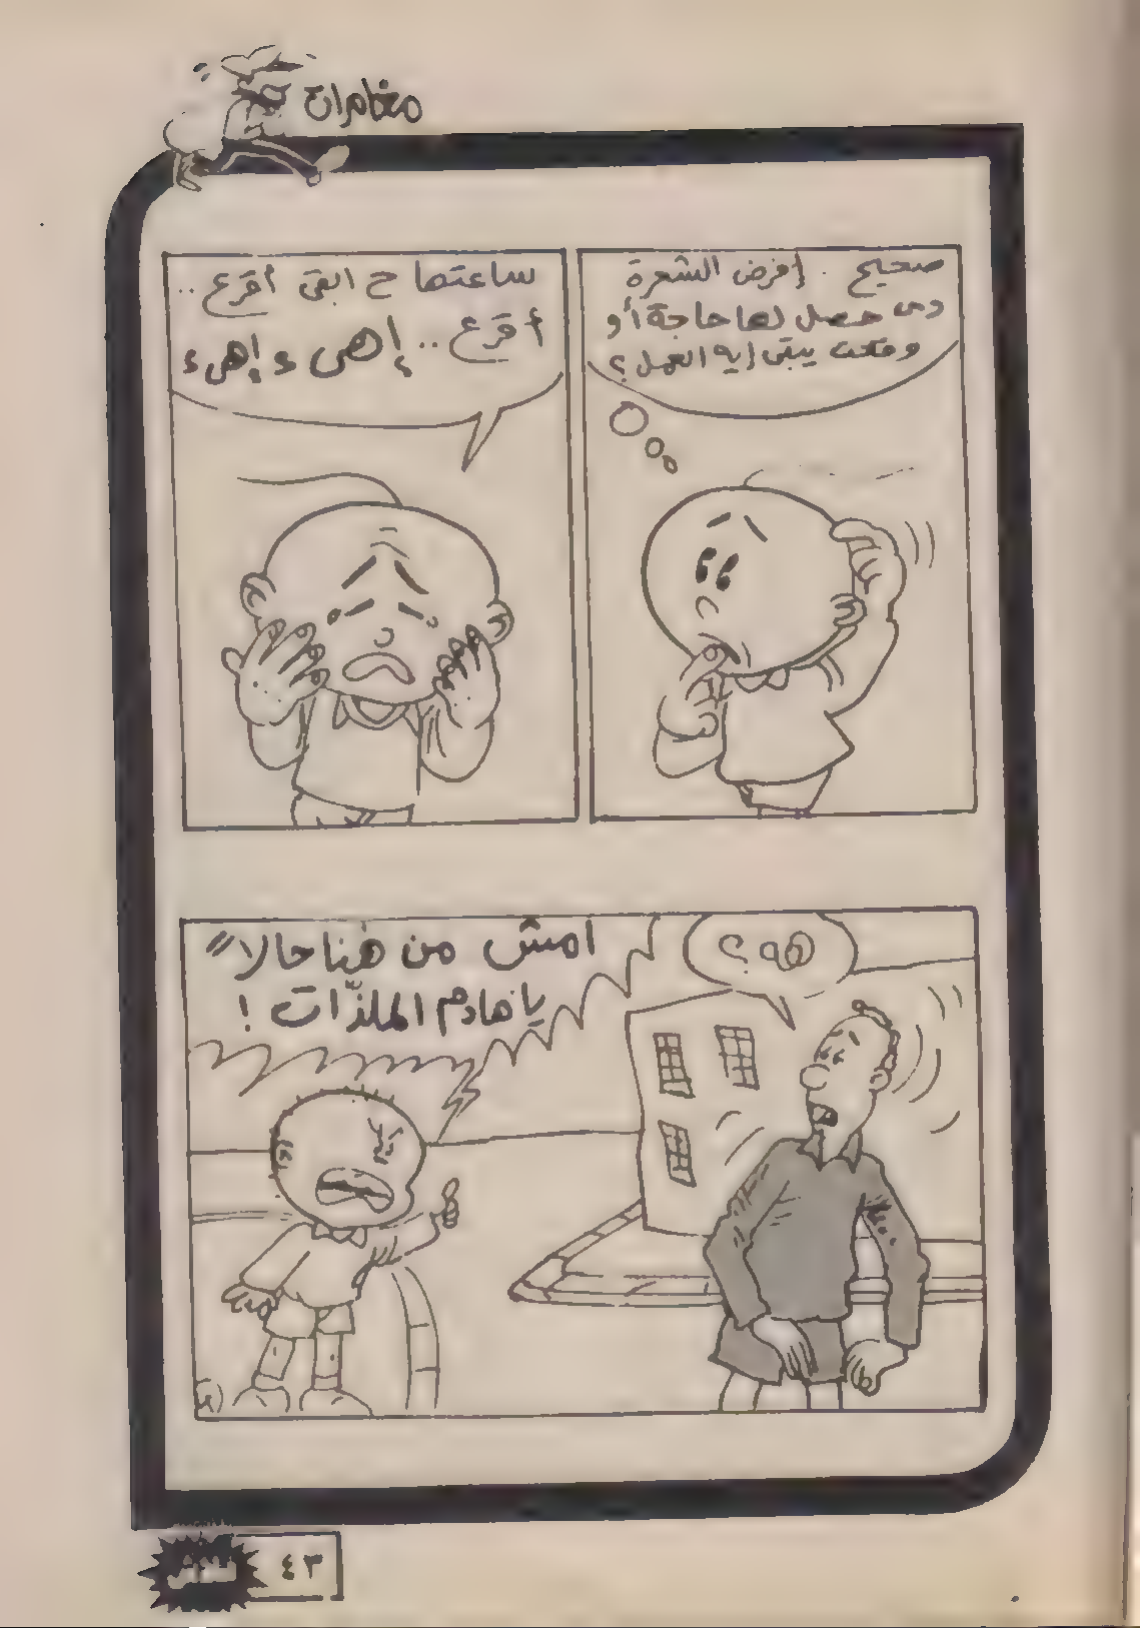 مغامرات
صحيح .. إفرض الشعرة
دى حصل لها حاجة أو
وقعت يبقى إيه العمل؟
ساعتها ح ابقى أقرع ..
أقرع .. إهىء إهىء
هه؟
امش من هنا حالاً
يا هادم الملذّات !
٤٣
فلاش